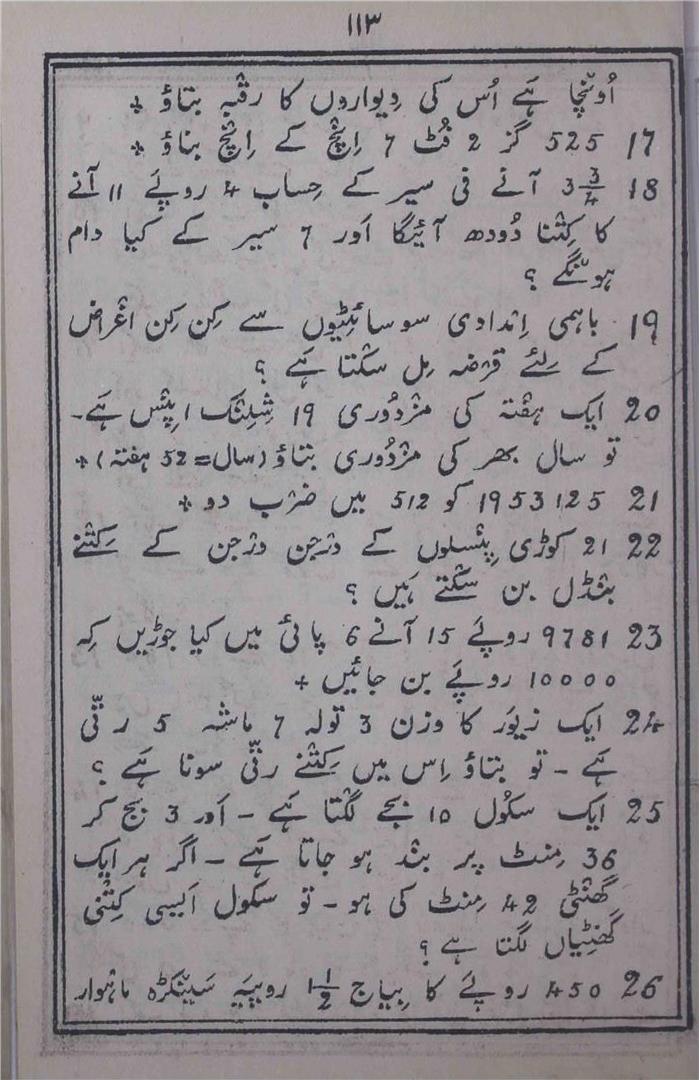 ۱۱۳
اُونچا ہَے اُس کی دِیواروں کا رقبہ بتاؤ +
17 525 گز 2 فُٹ 7 اِنْچ کے اِنْچ بناؤ +
18 3 3/4 آنے فی سیر کے حِساب 4 روپَے 11 آنے
کا کِتْنا دُودھ آئیگا اَور 7 سیر کے کیا دام
ہونگے ؟
19 باہمی اِمْدادی سوسائیٹیوں سے کِن کِن اغْراض
کے لِئے قرْضہ مِل سکْتا ہَے ؟
20 ایک ہفْتہ کی مزْدُوری 19 شِلِنْگ 1 پنْس ہَے۔
تو سال بھر کی مزْدُوری بتاؤ (سال = 52 ہفتہ) +
21 1953125 کو 512 میں ضرْب دو +
22 21 کوڑی پِنْسلوں کے درْجن درْجن کے کِتْنے
بنْڈل بن سکْتے ہَیں ؟
23 9781 روپَے 15 آنے 6 پائی میں کیا جوڑیں کہ
10000 روپَے بن جائیں +
24 ایک زیوَر کا وزن 3 تولہ 7 ماشہ 5 رتّی
ہَے ۔ تو بتاؤ اِس میں کِتْنے رتّی سونا ہَے ؟
25 ایک سکُول 10 بجے لگْتا ہَے ۔ اَور 3 بج کر
36 مِنٹ پر بنْد ہو جاتا ہَے ۔ اگر ہر ایک
گھنْٹی 42 مِنٹ کی ہو ۔ تو سکول اَیسی کِتْنی
گھنْٹِیاں لگتا ہے ؟
26 450 روپَے کا بِیاج 1 1/2 روپیَہ سَینْکڑہ ماہْوار